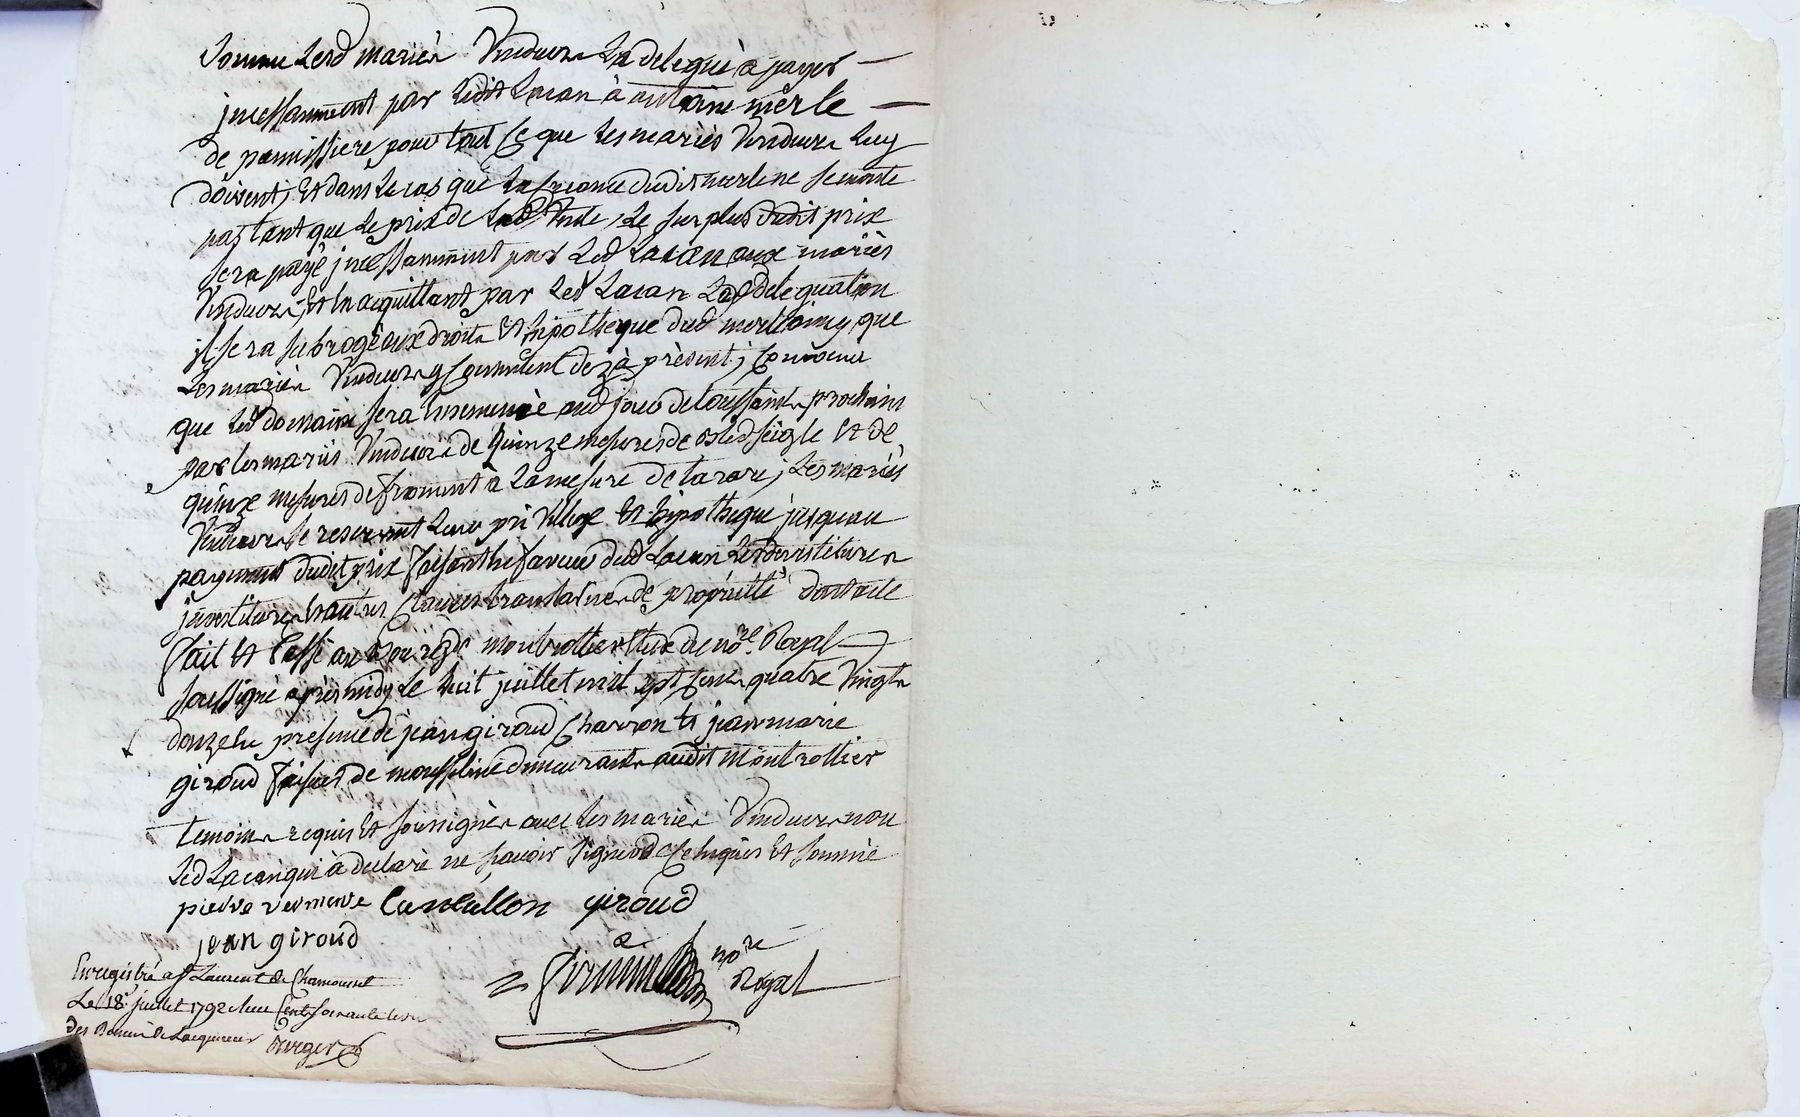 somme lesd mariés vendeurs la délégué à payer
incessamment par ledit Lacan à antoine merle
de pannissiere pour tout ce que les mariés vendeurs luy
doivent, Et dans le cas que la créance dudit merle ne se monte
pas tant que le prix de lad vente, le surplus dudit prix
sera payé incessamment par led Lacan aux mariés
vendeurs, Et en acquittant par led Lacan lad délégation
il sera subrogé aux droits Et hipotheque dud merle ainsy que
les mariés vendeurs y consentent dez à présent; convenu
que led domaine sera ensemencé aud jour de toussaints prochain
par les mariés vendeurs de quinze mesures de bled seigle et de
quinze mesures de froment à la mesure de tarare, Les mariés
vendeurs se reservent leur privilege Et hipotheque jusqu'au
payement dudit prix faisant en faveur dud Lacan les devestitures
investitures Et autres clauses translatives de propriété dont acte
fait Et passé au Bourg de montrottier Etude du no.re Royal
soussigné après midy le huit juillet mil sept cent quatre vingt
douze En presence de jean giroud charron Et jean marie
giroud faiseur de mousseline demeurants audit montrottier
temoins requis Et soussignés avec les mariés vendeurs non
led Lacan qui a declaré ne sçavoir signer de ce Enquis Et sommé
pierre vermare giroud
jean giroud
no.re
Royal
Enregistré a St Laurent de Chamousset
Le 18 juillet 1792